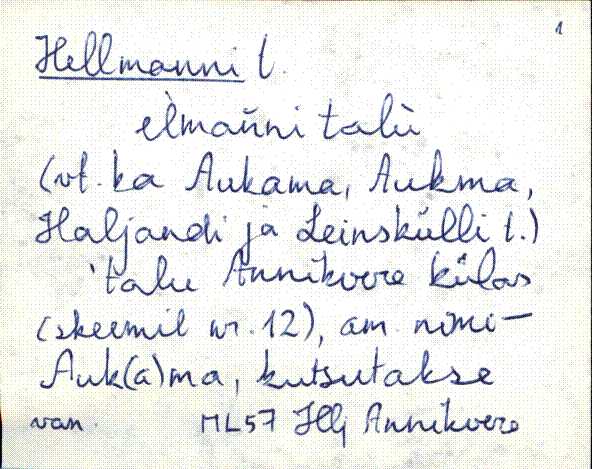 1
Hellmanni t.
èlmańni talù
(vt. ka Aukama, Aukma,
Haljandi ja Leinskülli t.)
'talu Annikvere külas
(skeemil nr. 12), am. nimi –
Auk(a)ma, kutsutakse
van. ML57 Hlj Annikvere